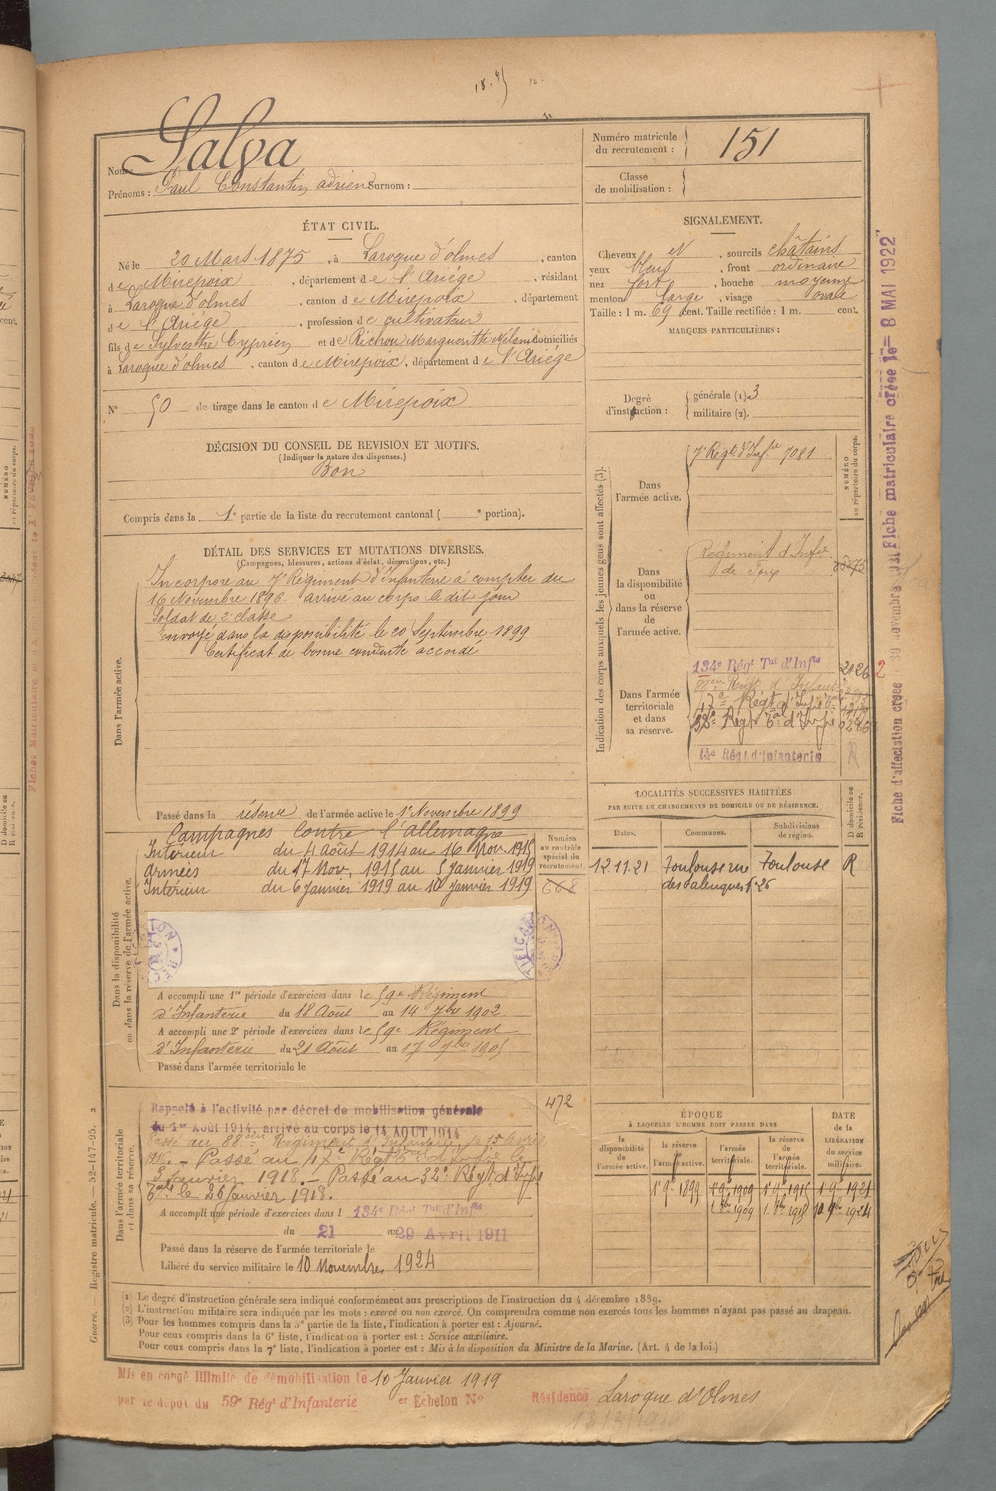 Salva
Numéro matricule du recrutement : 151
Nom :
Prénoms : Paul Constantin adrien Surnom :
Classe de mobilisation :
ÉTAT CIVIL.
Né le 20 Mars 1875, à Laroque d'olmes, canton
de Mirepoix, département de l'Ariége, résidant
à Laroque d'olmes, canton de Mirepoix, département
de l'Ariége, profession de cultivateur
fils de Sylvestre Cyprien et de Richou Marguerite Mélanie domiciliés
à Laroque d'olmes, canton de Mirepoix, département de l'Ariége
N° 50 de tirage dans le canton de Mirepoix
SIGNALEMENT.
Cheveux N, sourcils châtains
yeux bleus, front ordinaire
nez fort, bouche moyenne
menton large, visage ovale
Taille : 1 m. 69 cent. Taille rectifiée : 1 m. cent.
MARQUES PARTICULIÈRES :
Degré d'instruction : générale (1) 3
militaire (2).
DÉCISION DU CONSEIL DE REVISION ET MOTIFS.
(Indiquer la nature des dispenses.)
Bon
Compris dans la 1e partie de la liste du recrutement cantonal ( e portion).
DÉTAIL DES SERVICES ET MUTATIONS DIVERSES.
(Campagnes, blessures, actions d'éclat, décorations, etc.)
Dans l'armée active.
Incorporé au 7e Régiment d'Infanterie à compter du
16 Novembre 1896 arrivé au corps le dit jour
Soldat de 2e classe
Envoyé dans la disponibilité le 20 Septembre 1899
Certificat de bonne conduite accordé
Passé dans la réserve de l'armée active le 1er Novembre 1899
Indication des corps auxquels les jeunes gens sont affectés (3).
NUMÉRO au répertoire du corps.
Dans l'armée active.
7e Régt d'Infie 7081
Dans la disponibilité ou dans la réserve de l'armée active.
Régiment d'Infie
de Foix
Dans l'armée territoriale et dans sa réserve.
134e Régt Tal d'Infie 2126
88eme Régt d'Infant
17e Régt d'Infie Tale
32e Régt Tal d'Infie
14e Régt d'Infanterie R
Dans la disponibilité ou dans la réserve de l'armée active.
Campagnes Contre l'allemagne
Intérieur du 4 Août 1914 au 16 Nov. 1915
armées du 17 Nov. 1915 au 5 janvier 1919
Intérieur du 6 janvier 1919 au 10 janvier 1919
Numéro au contrôle spécial du recrutement.
668
A accompli une 1re période d'exercices dans le 59e Régiment
d'Infanterie du 18 Août au 14 7bre 1902
A accompli une 2e période d'exercices dans le 59e Régiment
d'Infanterie du 21 Août au 17 7bre 1905
Passé dans l'armée territoriale le
LOCALITÉS SUCCESSIVES HABITÉES
PAR SUITE DE CHANGEMENTS DE DOMICILE OU DE RÉSIDENCE.
Dates. Communes. Subdivisions de région. D domicile ou R résidence.
12.11.21 Toulouse rue des Salenques n° 26 Toulouse R
Dans l'armée territoriale et dans sa réserve.
472
Rappelé à l'activité par décret de mobilisation générale
du 1er Août 1914, arrivé au corps le 14 AOUT 1914
Passé au 88eme Régiment d'Infanterie le 15 Avril
1915. - Passé au 17e Régt Tal d'Infie le
5 Janvier 1918. - Passé au 32e Régt d'Infie
Tale le 26 janvier 1918.
A accompli une période d'exercices dans l 134e Régt Tal d'Infie
du 21 au 29 Avril 1911
Passé dans la réserve de l'armée territoriale le
Libéré du service militaire le 10 Novembre 1924
ÉPOQUE
À LAQUELLE L'HOMME DOIT PASSER DANS
la disponibilité de l'armée active. la réserve de l'armée active. l'armée territoriale. la réserve de l'armée territoriale.
DATE de la LIBÉRATION du service militaire.
1er 9bre 1899 1er 9bre 1909 1er 9bre 1915 1er 9bre 1921
1. 8bre 1909 1. 8bre 1915 10 9bre 1924
(1) Le degré d'instruction générale sera indiqué conformément aux prescriptions de l'instruction du 4 décembre 1889.
(2) L'instruction militaire sera indiquée par les mots : exercé ou non exercé. On comprendra comme non exercés tous les hommes n'ayant pas passé au drapeau.
(3) Pour les hommes compris dans la 5e partie de la liste, l'indication à porter est : Ajourné.
Pour ceux compris dans la 6e liste, l'indication à porter est : Service auxiliaire.
Pour ceux compris dans la 7e liste, l'indication à porter est : Mis à la disposition du Ministre de la Marine. (Art. 4 de la loi.)
Mis en congé illimité de démobilisation le 10 Janvier 1919
par le dépôt du 59e Régt d'Infanterie er Échelon N° Résidence Laroque d'Olmes
Guerre. — Registre matricule. — 32-147-95.
Fiche matriculaire créée le 8 MAI 1922